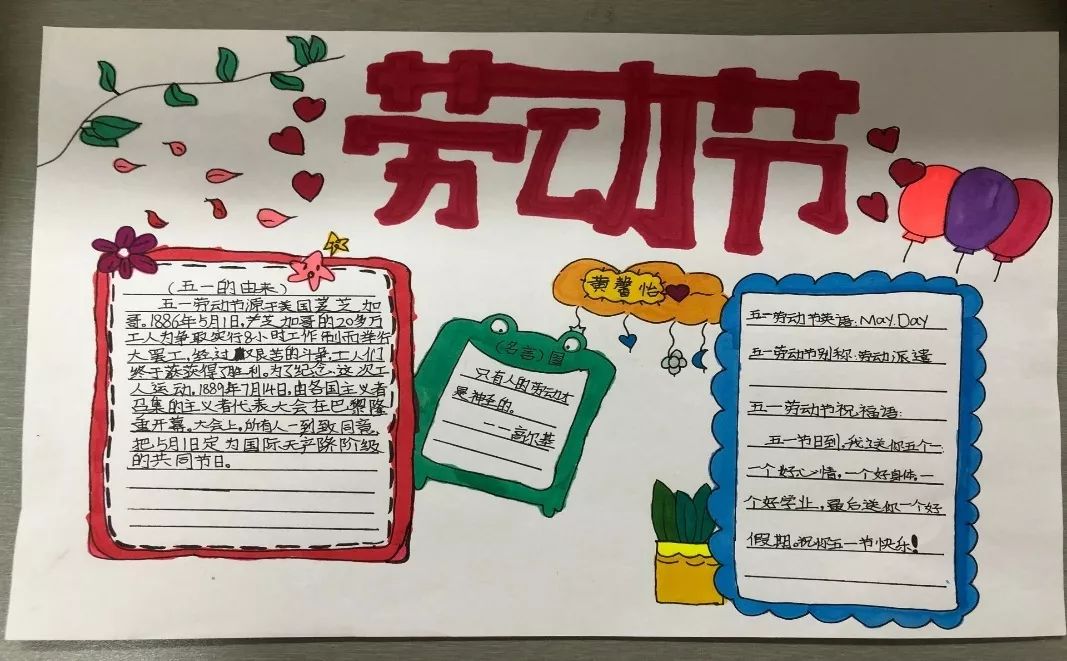 劳动节
(五一的由来)
五一劳动节源于美国芝芝加
哥。1886年5月1日,芝加哥的20多万
工人为争取实行8小时工作制而举行
大罢工,经过艰苦的斗争,工人们
终于获获得了胜利。为了纪念这次工
人运动,1889年7月14日,由各国主义者
召集的主义者代表大会在巴黎隆
重开幕。大会上,所有人一到致同意,
把5月1日定为国际无产阶阶级
的共同节日。
(名言)
只有人的劳动才
是神圣的。
——高尔基
黄馨怡
五一劳动节英语:May.Day
五一劳动节别称:劳动派遣
五一劳动节祝福语:
五一节日到,我送你五个一:
一个好心情,一个好身体,一
个好学业,最后送你一个好
假期。祝你五一节快乐!